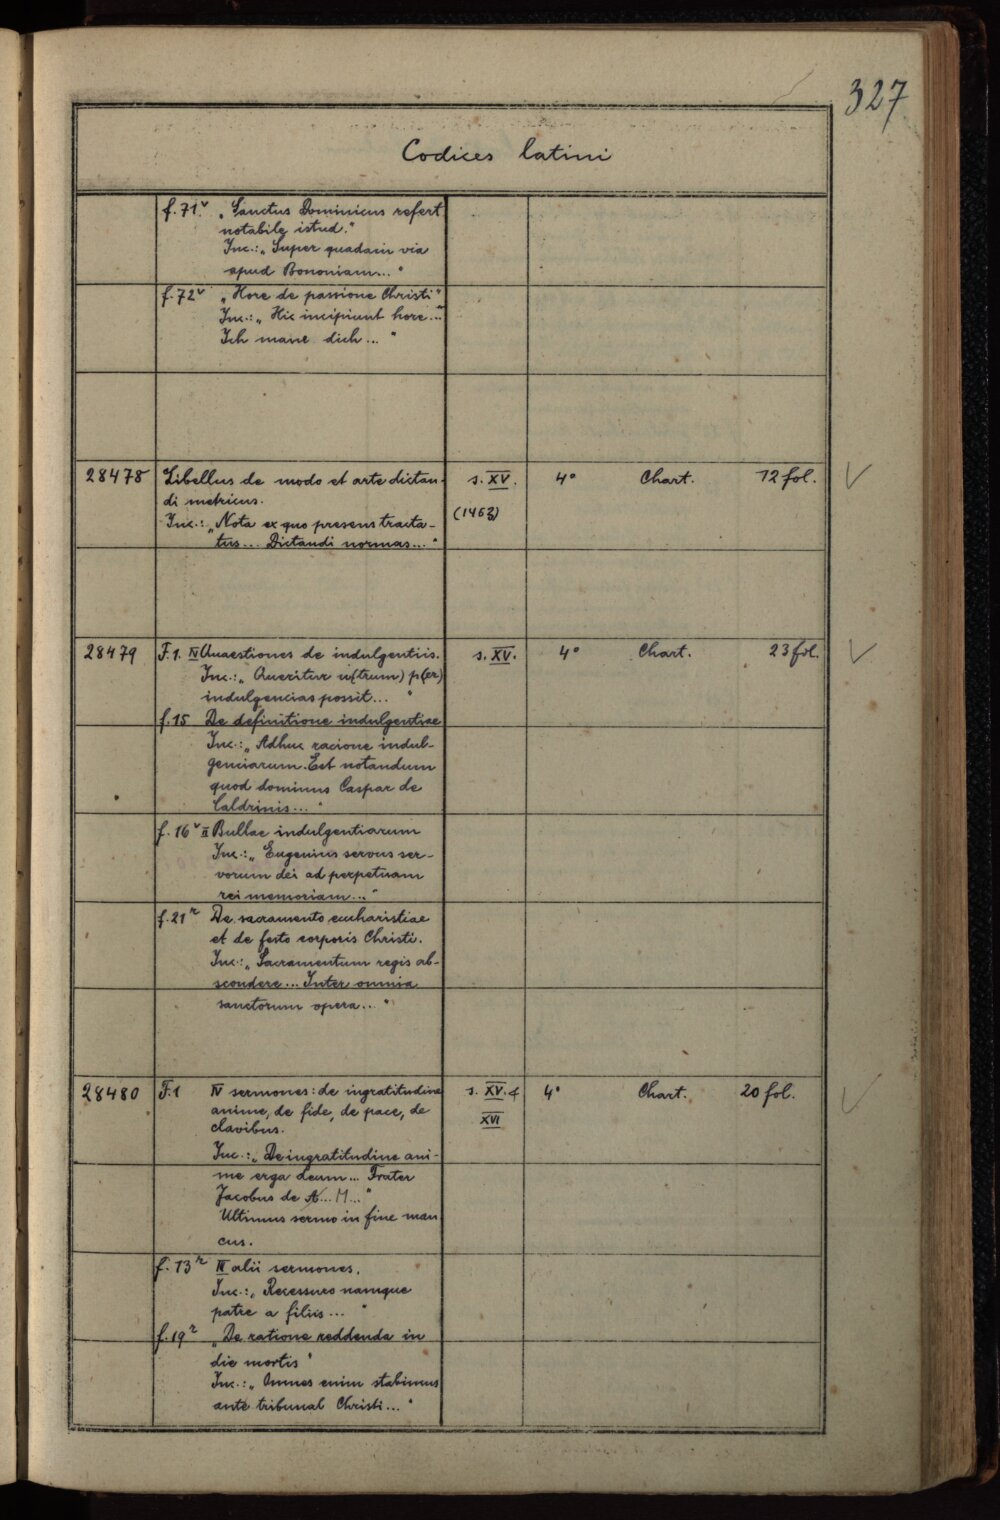 327
Codices latini
f. 71v „Sanctus Dominicus refert
notabile istud."
Inc.: „Super quadam via
apud Bononiam..."
f. 72v „Hore de passione Christi"
Inc.: „Hic incipiunt hore...
Ich mane dich..."
28478 Libellus de modo et arte dictan- s. XV. 4° Chart. 12 fol.
di metricus. (1463)
Inc.: „Nota ex quo presens tracta-
tus... Dictandi normas..."
28479 F. 1. IV Quaestiones de indulgentiis. s. XV. 4° Chart. 23 fol.
Inc.: „Queritur u(trum) p(er)
indulgencias possit..."
f. 15 De definitione indulgentiae
Inc.: „Adhuc racione indul-
genciarum. Est notandum
quod dominus Caspar de
Caldrinis..."
f. 16v II Bullae indulgentiarum
Inc.: „Eugenius servus ser-
vorum dei ad perpetuam
rei memoriam..."
f. 21r De sacramento eucharistiae
et de festo corporis Christi.
Inc.: „Sacramentum regis ab-
scondere... Inter omnia
sanctorum opera..."
28480 F. 1 IV sermones: de ingratitudine s. XV. & 4° Chart. 20 fol.
anime, de fide, de pace, de XVI
clavibus.
Inc.: „De ingratitudine ani-
me erga deum... Frater
Jacobus de ... M..."
Ultimus sermo in fine man
cus.
f. 13r IV alii sermones.
Inc.: „Recessuro namque
patre a filiis..."
f. 19r „De ratione reddenda in
die mortis"
Inc.: „Omnes enim stabimus
ante tribunal Christi..."